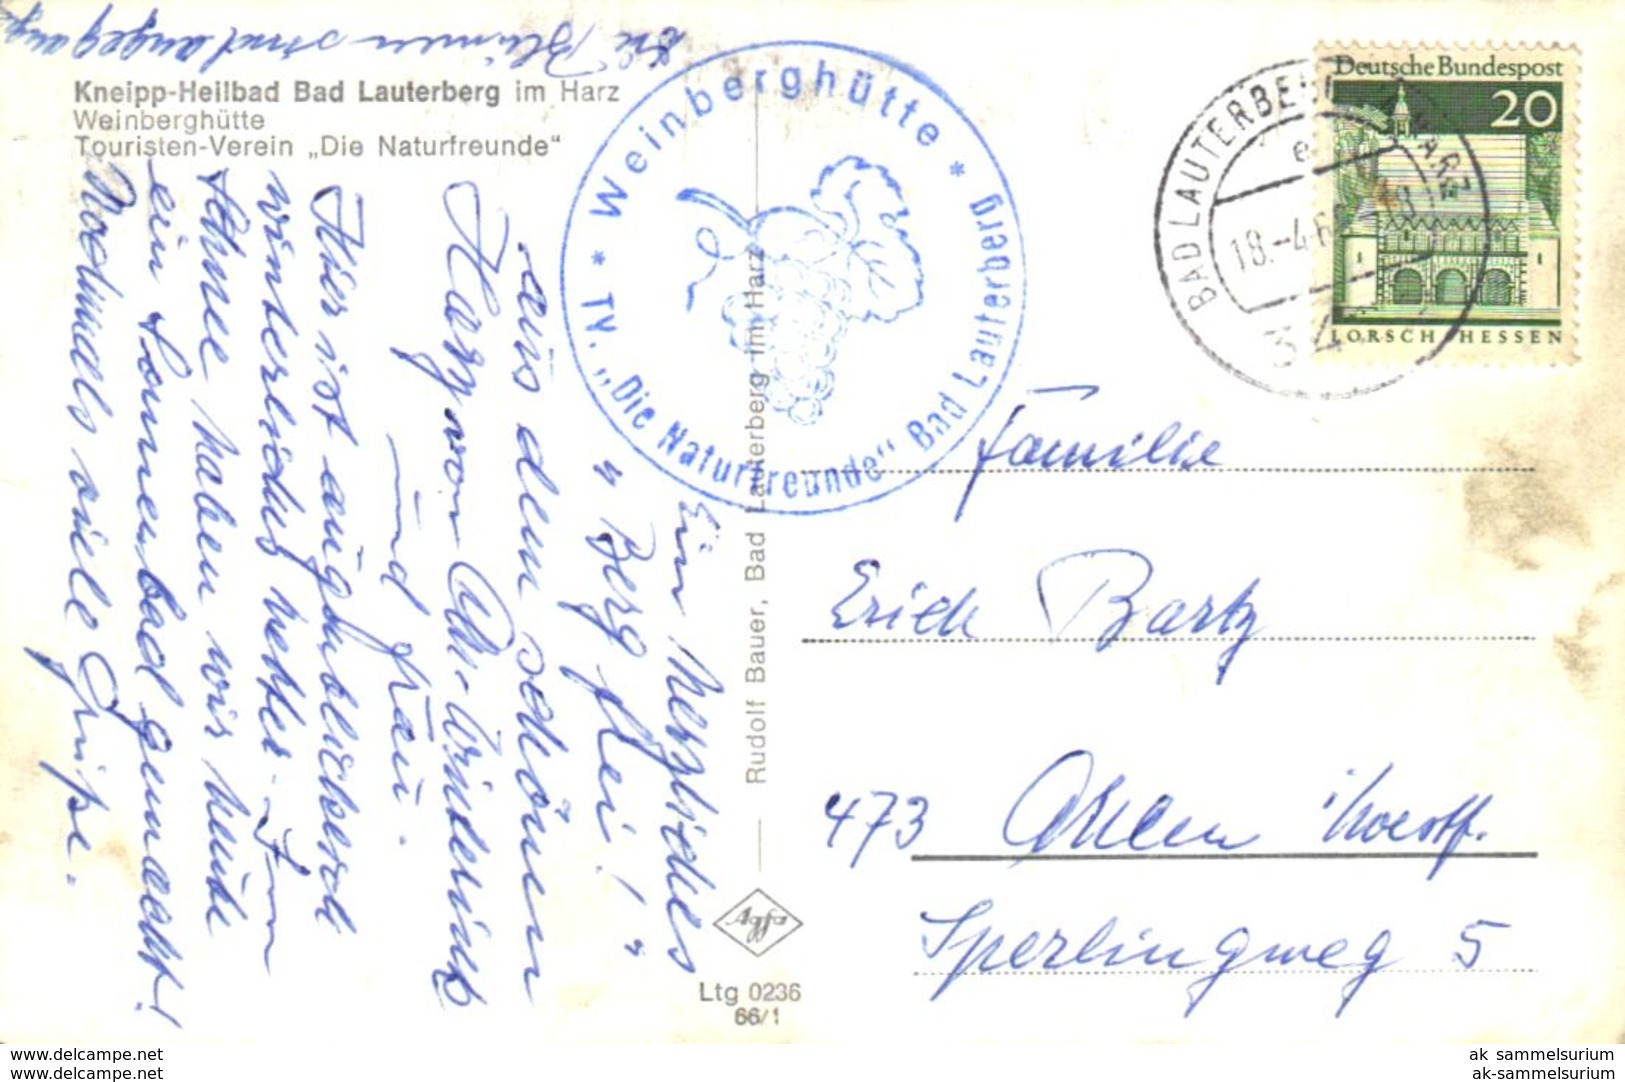 Kneipp-Heilbad Bad Lauterberg im Harz
Weinberghütte
Touristen-Verein „Die Naturfreunde"
* Weinberghütte *
TV. „Die Naturfreunde" Bad Lauterberg
BAD LAUTERBERG HARZ
e
18.-4.6
34
Deutsche Bundespost
20
LORSCH HESSEN
Ein herzliches
„Berg frei!"
aus dem schönen
Harz von
und Frau.
Hier ist augenblicklich
winterliches Wetter. Im
Schnee haben wir heute
ein Sonnenbad gemacht!
Nochmals viele Grüße.
die Blumen sind angegang
Rudolf Bauer, Bad Lauterberg im Harz
Agfa
Ltg 0236
66/1
Familie
Erich Bartz
473 Ahlen i/Westf.
Sperlingweg 5
www.delcampe.net
www.delcampe.net
ak_sammelsurium
ak-sammelsurium